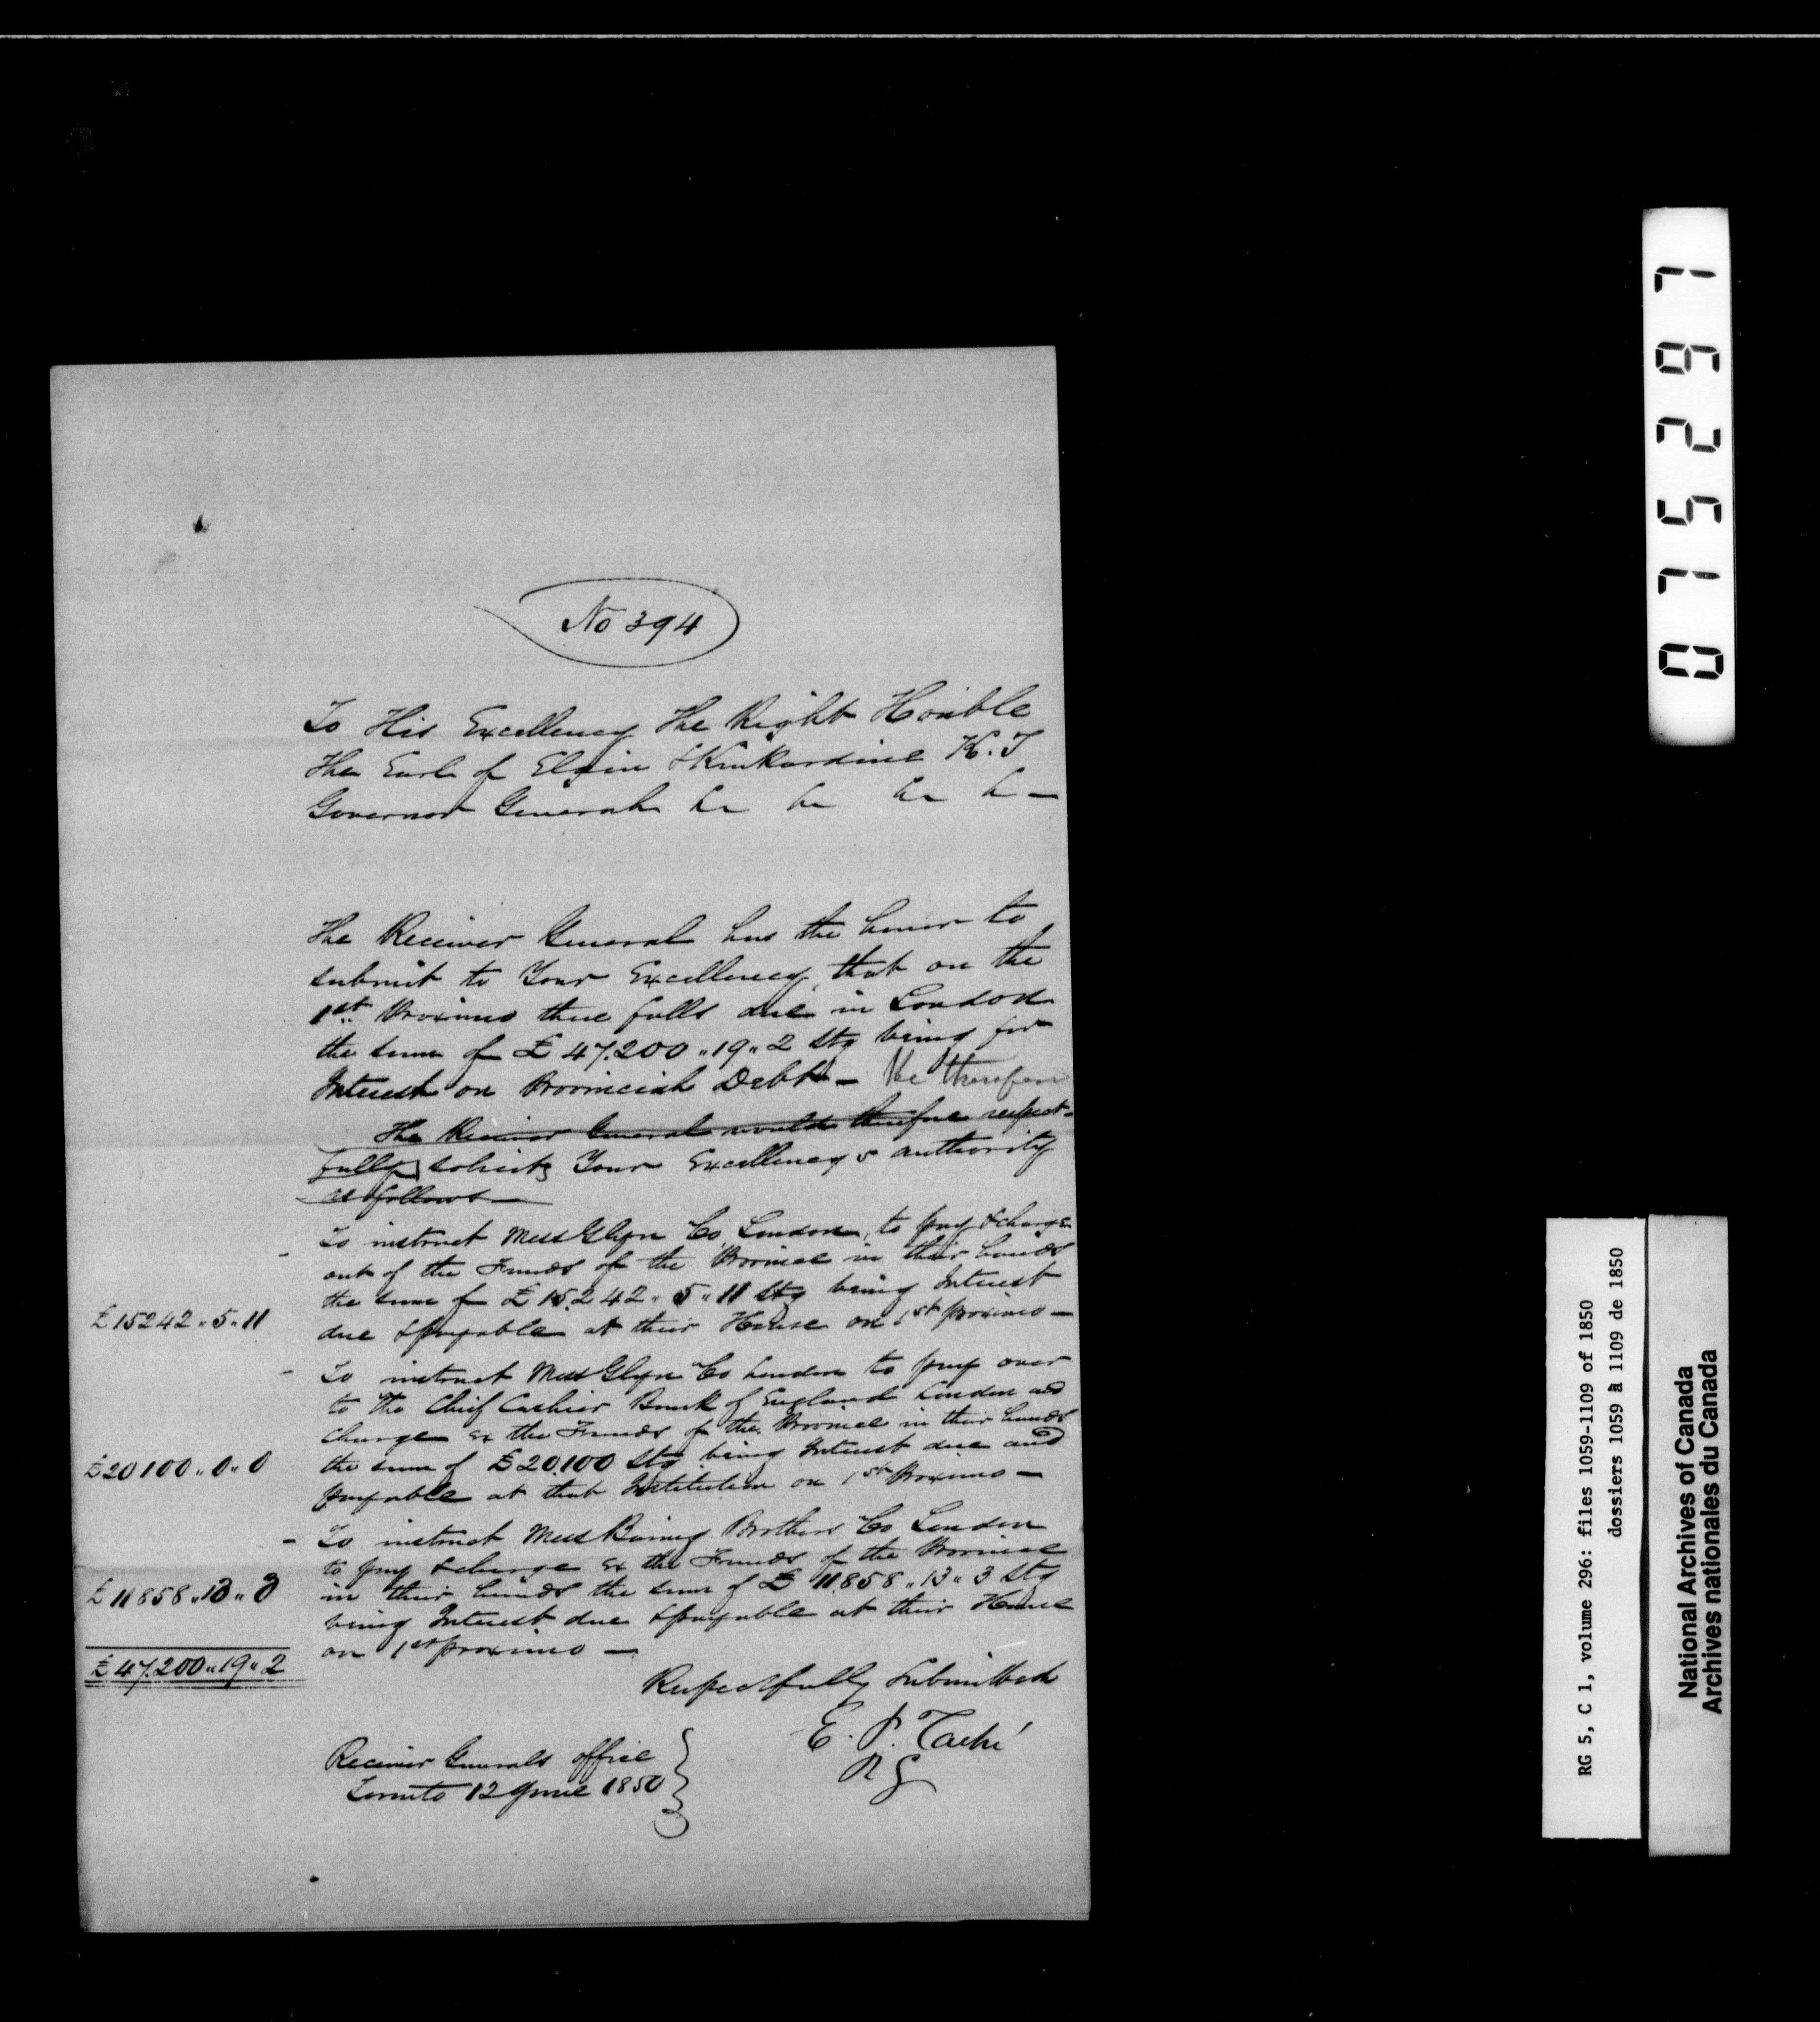 No 394
To His Excellency The Right Honble
The Earl of Elgin & Kinkardine K. T
Governor General &c &c &c &c —
The Receiver General has the honor to
submit to Your Excellency, that on the
1st Proximo there falls due in London
the sum of £ 47.200 " 19 " 2 Stg being for
Interest on Provincial Debt — He therefore
The Receiver General would therefore respect-
fully solicits Your Excellency's authority
as follows —
- To instruct Mess Glyn Co, London, to pay & charge
out of the Funds of the Province in their hands
the sum of £ 15.242 " 5 " 11 Stg being Interest
£ 15242 " 5 " 11
due & payable at their House on 1st proximo —
- To instruct Mess Glyn Co London to pay over
to The Chief Cashier Bank of England London and
charge ex the Funds of the Province in their hands
£ 20100 " 0 " 0
the sum of £ 20.100 Stg being Interest due and
payable at that Institution on 1st Proximo —
- To instruct Mess Baring Brothers Co London
to pay & charge ex the Funds of the Province
£ 11858 " 13 " 3
in their hands the sum of £ 11.858 " 13 " 3 Stg
being Interest due & payable at their House
on 1st proximo —
£ 47.200 " 19 " 2
Respectfully Submitted
E. P. Taché
R G
Receiver Generals office
Toronto 12 June 1850
017 5 2 9 1
RG 5, C 1, volume 296: files 1059-1109 of 1850
dossiers 1059 à 1109 de 1850
National Archives of Canada
Archives nationales du Canada